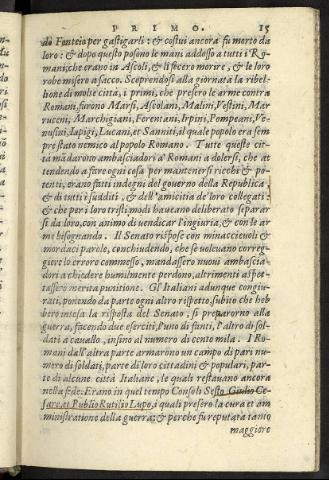 PRIMO. 15
do Fonteio per gastigarli: & costui ancora fu morto da
loro: & dopo questo posono le mani addosso a tutti i Ro-
mani, che erano in Ascoli, & li fecero morire, & le loro
robe misero a sacco. Scoprendosi alla giornata la ribel-
lione di molte città, i primi, che presero le arme contra
Romani, furono Marsi, Ascolani, Malini, Vestini, Mar
ruceni, Marchigiani, Ferentani, Irpini, Pompeani, Ve-
nusini, Iapigi, Lucani, et Sanniti, il quale popolo era sem
pre stato nemico al popolo Romano. Tutte queste cit-
tà mādarono ambasciadori a' Romani a dolersi, che at
tendendo a fare ogni cosa per mantenersi ricchi & po-
tenti, erano fatti indegni del governo della Republica,
& di tutti i sudditi, & dell'amicitia de' loro collegati:
& che per i lor tristi modi haueano deliberato separar
si da loro, con animo di vendicar l'ingiuria, & con le ar
me bisognando. Il Senato rispose con minacceuoli &
mordaci parole, conchiudendo, che se voleuano correg-
giere lo errore commesso, mandassero nuoui ambascia-
dori a chiedere humilmente perdono, altrimenti aspet-
tassero merita punitione. Gl' Italiani adunque congiu-
rati, ponendo da parte ogni altro rispetto, subito che heb
bero intesa la risposta del Senato, si prepararno alla
guerra, facendo due eserciti, l'uno di fanti, l'altro di sol-
dati a cauallo, insino al numero di cento mila. I Ro-
mani dall'altra parte armarono un campo di pari nu-
mero di soldati, parte di loro cittadini & populari, par-
te di alcune città Italiane, le quali restauano ancora
nella fede: Erano in quel tempo Consoli Sesto Giulio Ce-
sare, et Publio Rutilio Lupo, i quali presero la cura et am
ministratione della guerra: & perche fu reputata tanto
maggiore